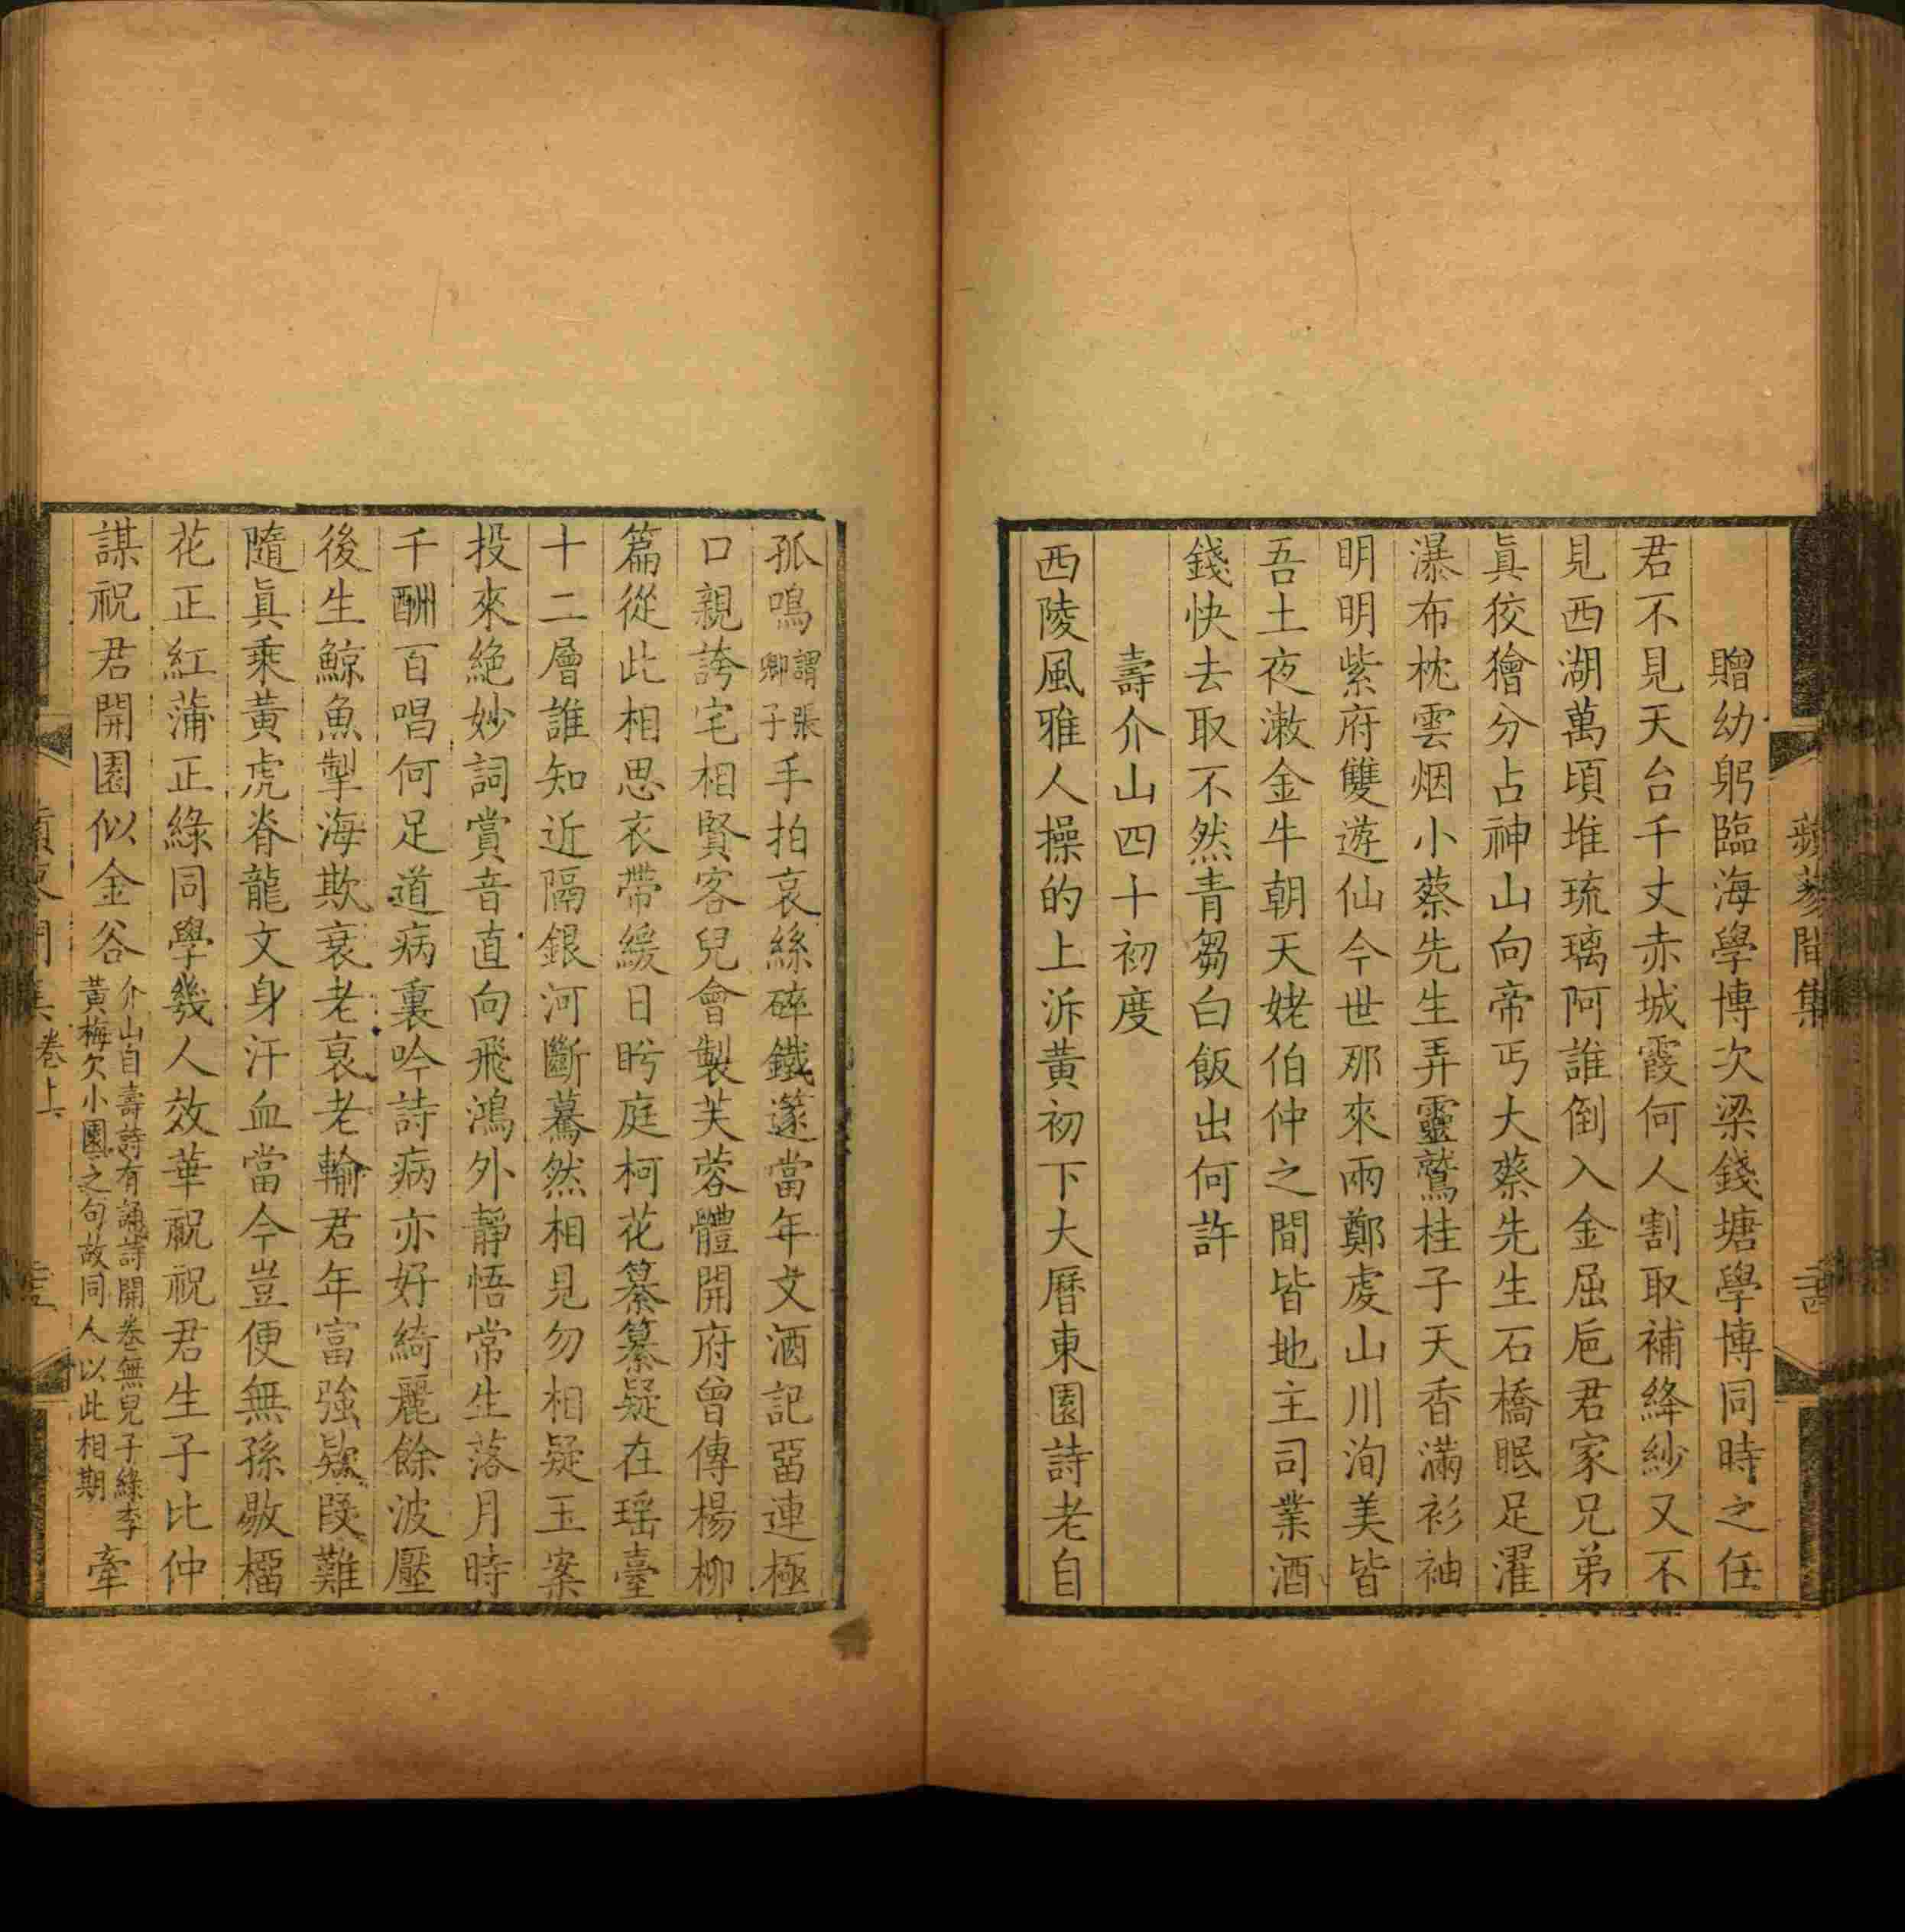 贈幼躬臨海學博次梁錢塘學博同時之任
君不見天台千丈赤城霞何人割取補絳紗又不
見西湖萬頃堆琉璃阿誰倒入金屈巵君家兄弟
眞狡獪分占神山向帝丐大蔡先生石橋眠足濯
瀑布枕雲烟小蔡先生弄靈鷲桂子天香滿衫袖
明明紫府雙遊仙今世那來兩鄭虔山川洵美皆
吾土夜漱金牛朝天姥伯仲之間皆地主司業酒
錢快去取不然青芻白飯出何許
壽介山四十初度
西陵風雅人操的上泝黃初下大曆東園詩老自
孤鳴謂張子卿手拍哀絲碎鐵篴當年文酒記畱連極
口親誇宅相賢客兒會製芙蓉體開府曾傳楊柳
篇從此相思衣帶緩日眄庭柯花纂纂疑在瑶臺
十二層誰知近隔銀河斷驀然相見勿相疑玉案
投來絶妙詞賞音直向飛鴻外靜悟常生落月時
千酬百唱何足道病裏吟詩病亦好綺麗餘波壓
後生鯨魚掣海欺衰老衰老輸君年富強嶔叚難
隨眞乘黃虎脊龍文身汗血當今豈便無孫歇橊
花正紅蒲正綠同學幾人效華祝祝君生子比仲
謀祝君開園似金谷介山自壽詩有誦詩開卷無兒子綠李黃梅欠小園之句故同人以此相期牽
卷上